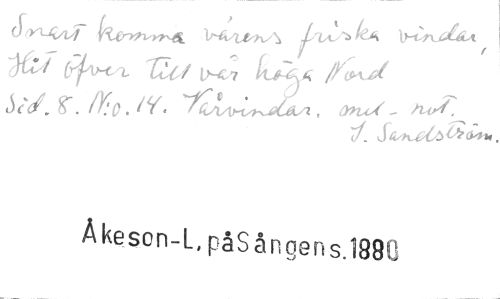 Snart komma vårens friska vindar,
Hit öfver till vår höga Nord
Sid. 8. N:o. 14. Vårvindar. mel-not.
I. Sandström.
Åkeson-L. påSångens.1880